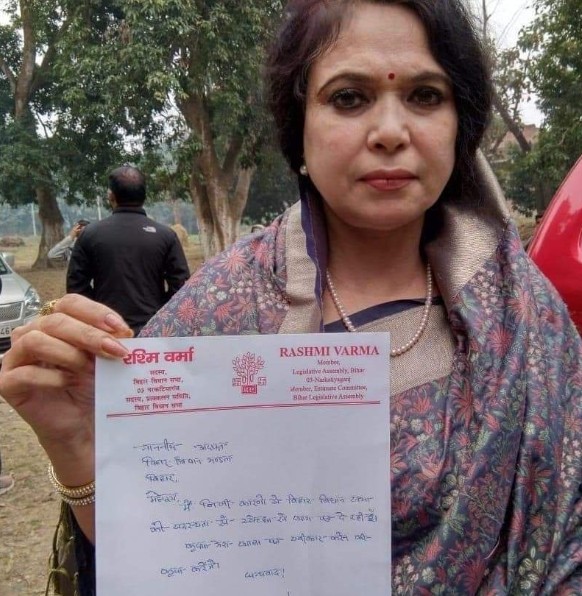 रश्मि वर्मा
सदस्य
बिहार विधान सभा,
03 नरकटियागंज
सदस्य, प्राक्कलन समिति,
बिहार विधान सभा
RASHMI VARMA
Member,
Legislative Assembly, Bihar
03-Narkatiyaganj
Member, Estimate Committee,
Bihar Legislative Assembly
माननीय अध्यक्ष
बिहार विधान
बिहार,
महोदय,
मैं निजी कारणों से बिहार विधान सभा
की सदस्यता से दे रही हूँ।
कृपया स्वीकार
कृपा करेंगे।
धन्यवाद!
46